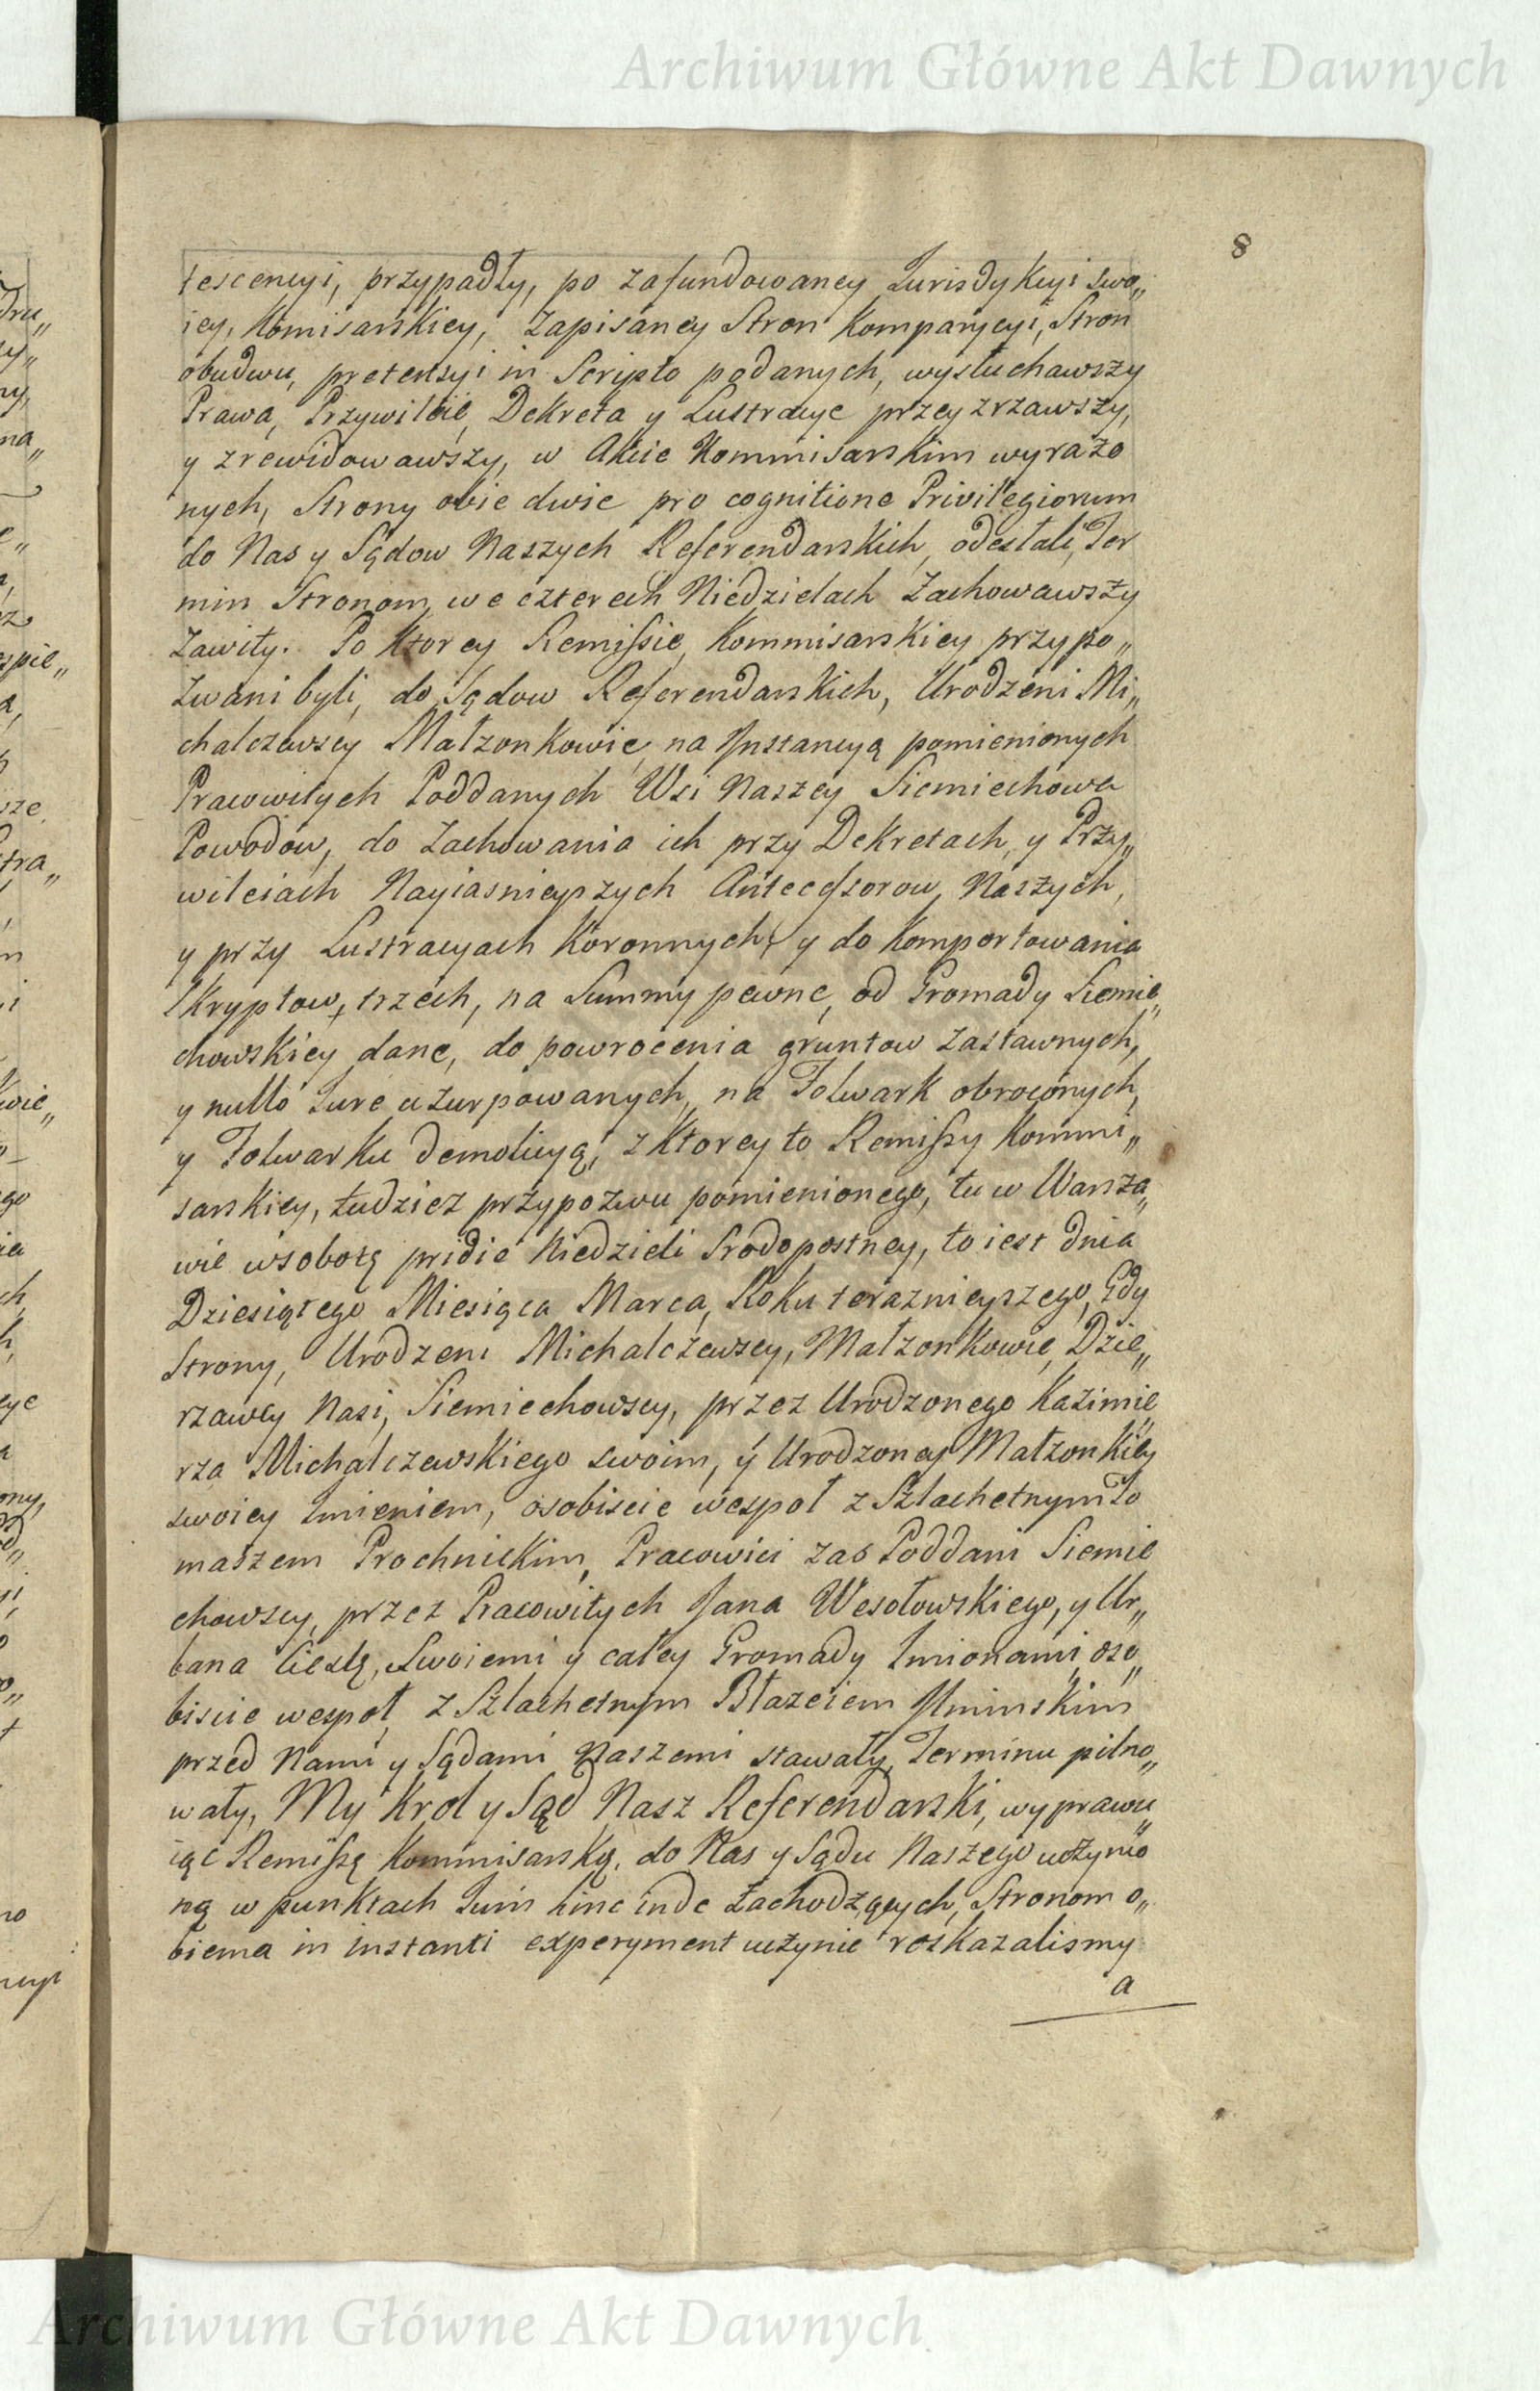 Archiwum Główne Akt Dawnych
8
tescencyi, przypadły, po zafundowaney Jurisdykcyi swo„
iey, Komisarskiey, Zapisaney Stron Komparycyi, Stron
obudwu, pretensyi in Scripto podanych, wysłuchawszy
Prawa, Przywileie, Dekreta y Lustracye przeyzrzawszy,
y zrewidowawszy, w Akcie Kommisarskim wyrazo
nych, Strony obie dwie pro cognitione Privilegiorum
do Nas y Sądow Naszych Referendarskich, odesłali, Ter
min Stronom, we czterech Niedzielach Zachowawszy
Zawity. Po Ktorey Remissie, Kommisarskiey przypo„
zwani byli, do Sądow Referendarskich, Urodzeni Mi„
chalczewscy Małzonkowie, na Jnstancyą pomienionych
Pracowitych Poddanych Wsi Naszey Siemiechowa
Powodow, do Zachowania ich przy Dekretach, y Przy„
wileiach Nayiasnieyszych Antecessorow, Naszych,
y przy Lustracyach Koronnych, y do Komportowania
Skryptow, trzech, na Summy pewne, od Gromady Siemie„
chowskiey dane, do powrocenia gruntow Zastawnych,
y nullo Jure uzurpowanych, na Folwark obroconych,
y Folwarku demolicyą, z Ktorey to Remissy Kommi„
sarskiey, tudziez przypozwu pomienionego, tu w Warsza„
wie w sobotę pridie Niedzieli Srodopostney, to iest dnia
Dziesiątego Miesiąca Marca, Roku teraznieyszego, Gdy
Strony, Urodzeni Michalczewscy, Małzonkowie, Dzie„
rzawcy Nasi, Siemiechowscy, przez Urodzonego Kazimie„
rza Michalczewskiego swoim, y Urodzoney Małzonkiey
swoiey Jmieniem, osobiscie wespoł z Szlachetnym To
maszem Prochnickim, Pracowici zas Poddani Siemie
chowscy, przez Pracowitych Jana Wesołowskiego, y Ur„
bana Cieslę, Swoiemi y całey Gromady Jmionami, oso„
biscie wespoł, z Szlachetnym Błazeiem Uminskim
przed Nami y Sądami Naszemi stawały, Terminu pilno„
wały, My Krol y Sąd Nasz Referendarski, wyprawu„
iąc Remissę Kommisarską, do Nas y Sądu Naszego uczynio
ną w punktach Juris hinc inde Zachodzących, Stronom o„
biema in instanti experyment uczynic roskazalismy
a
Archiwum Główne Akt Dawnych